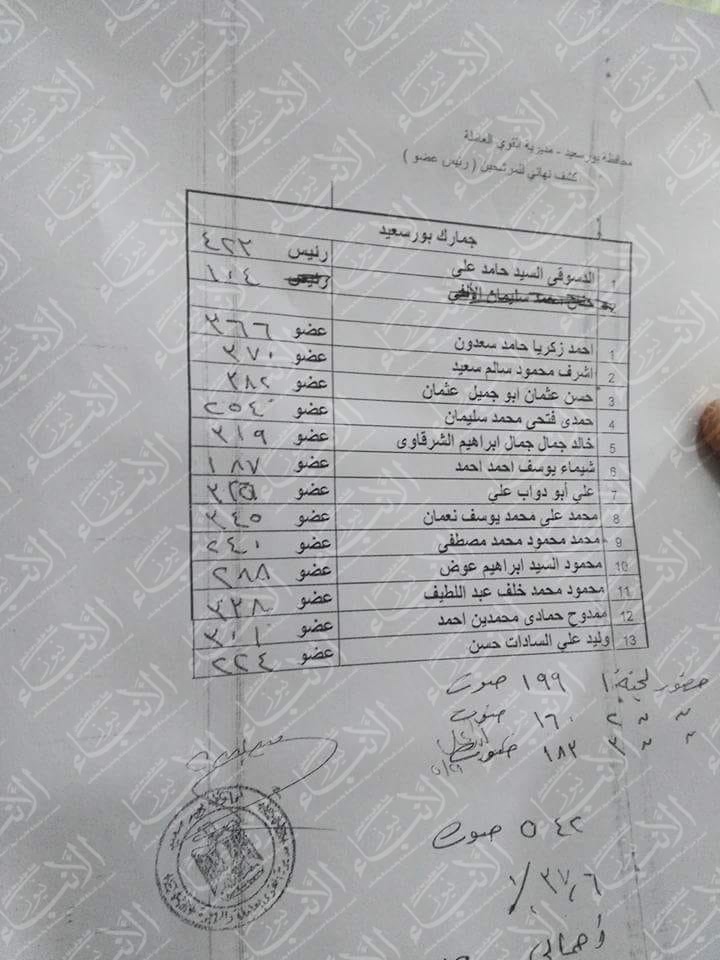 محافظة بورسعيد - مديرية القوي العاملة
كشف نهائي للمرشحين ( رئيس عضو )
جمارك بورسعيد
1 الدسوقى السيد حامد على رئيس ٤٢٢
احمد سليمان رئيس ١٠٤
1 احمد زكريا حامد سعدون عضو ٣٦٦
2 اشرف محمود سالم سعيد عضو ٣٧٠
3 حسن عثمان ابو جميل عثمان عضو ٣٨٢
4 حمدى فتحى محمد سليمان عضو ٢٥٤
5 خالد جمال جمال ابراهيم الشرقاوى عضو ٣١٩
6 شيماء يوسف احمد احمد عضو ١٨٧
7 علي أبو دواب علي عضو
8 محمد على محمد يوسف نعمان عضو ٣٤٥
9 محمد محمود محمد مصطفى عضو ٢٤٠
10 محمود السيد ابراهيم عوض عضو ٢٨٨
11 محمود محمد خلف عبد اللطيف عضو ٣٣٨
12 ممدوح حمادى محمدين احمد عضو ٣٠١
13 وليد علي السادات حسن عضو ٢٢٤
حضور لجنة ١ ١٩٩ صوت
" " ٢ ١٦٠ صوت
" " ٣ ١٨٣ صوت
٥٤٢ صوت
أجمالى